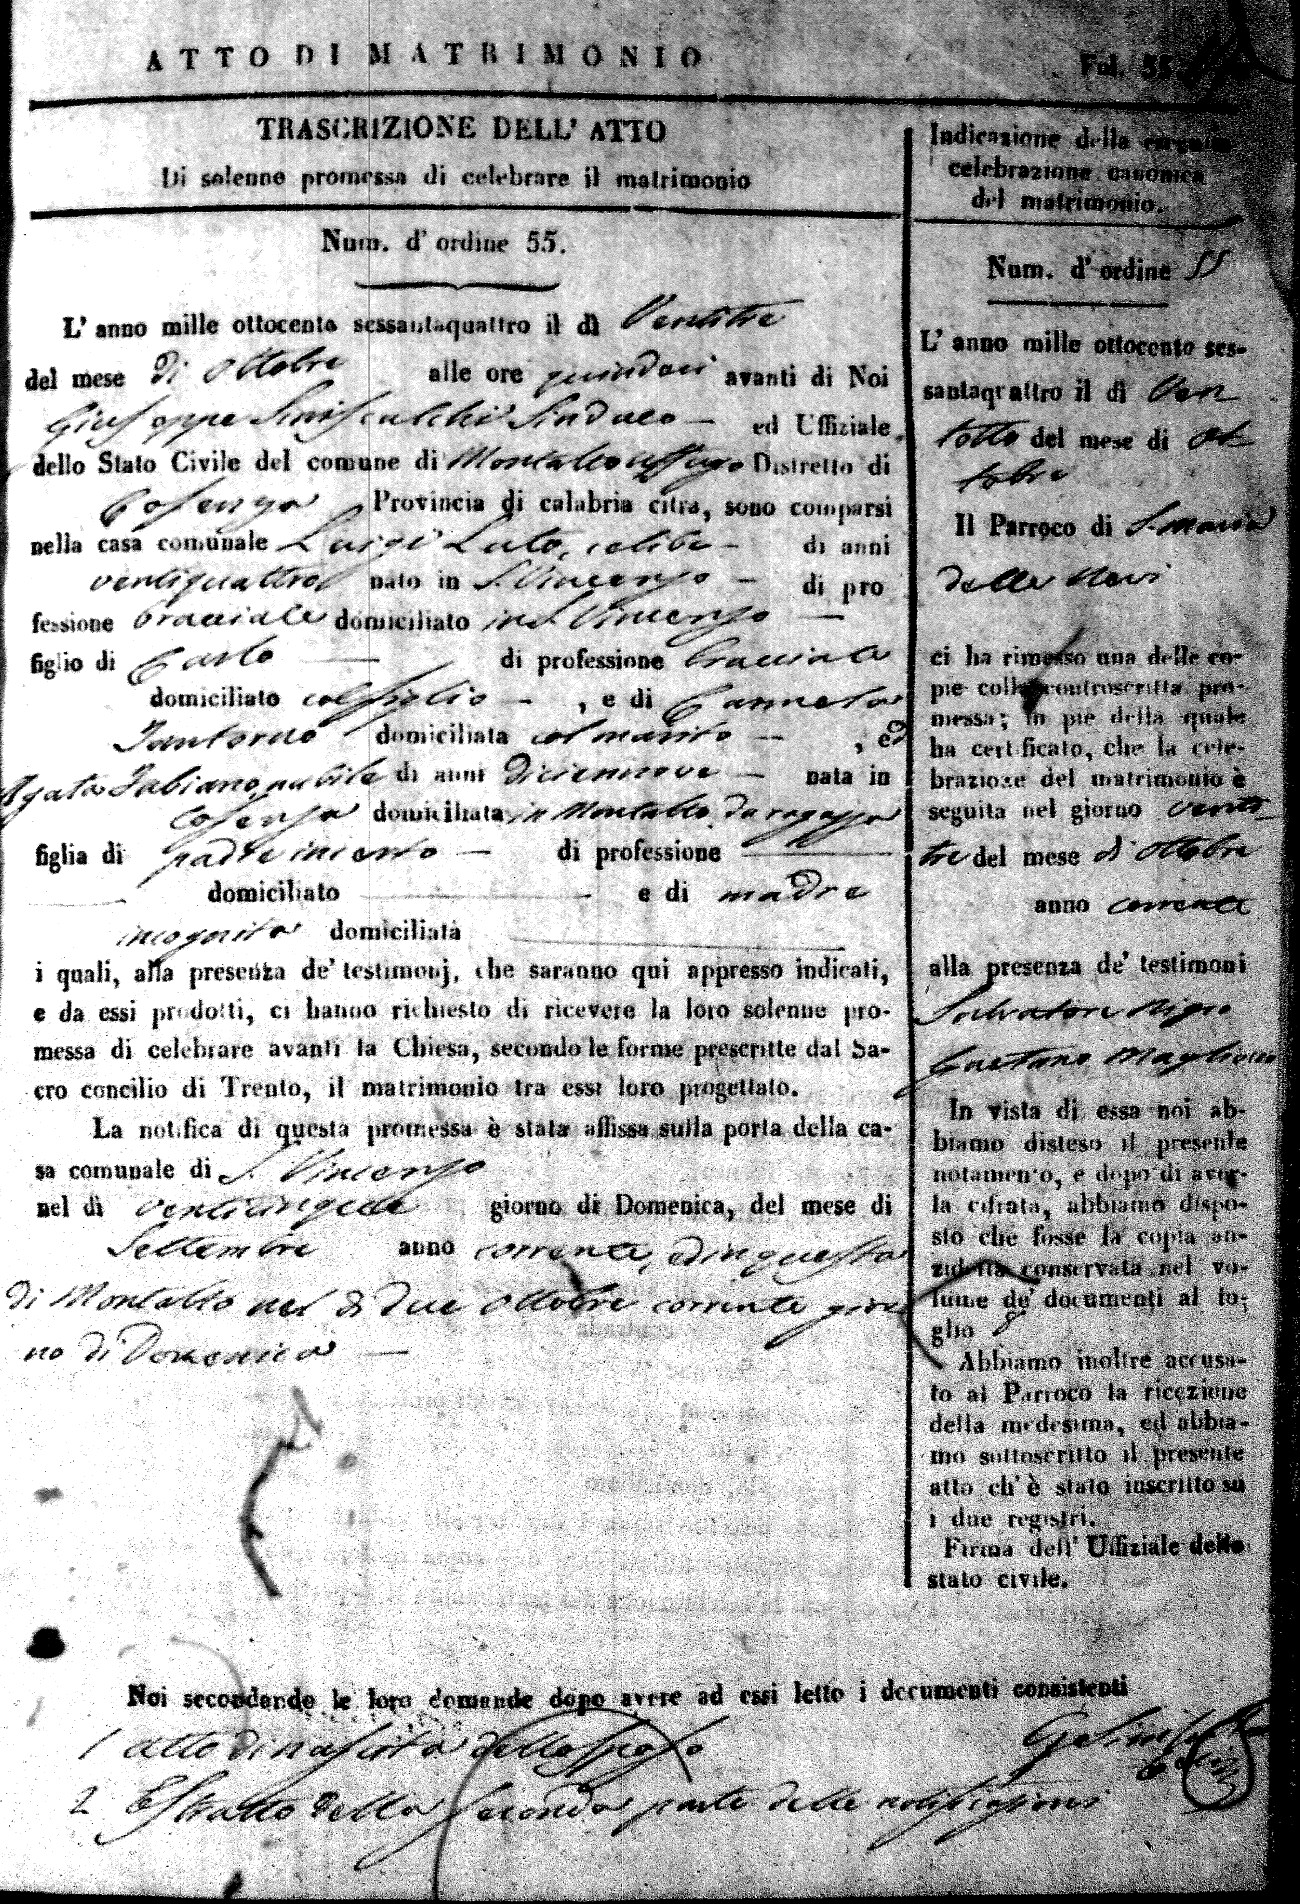 ATTO DI MATRIMONIO
Fol. 55
TRASCRIZIONE DELL' ATTO
Di solenne promessa di celebrare il matrimonio
Num. d' ordine 55.
L' anno mille ottocento sessantaquattro il dì Ventitre
del mese di Ottobre alle ore quindeci avanti di Noi
Giuseppe Siniscalchi Sindaco — ed Uffiziale
dello Stato Civile del comune di Montalto uffugo Distretto di
Cosenza Provincia di calabria citra, sono comparsi
nella casa comunale Luigi Luto, celibe — di anni
ventiquattro nato in S. Vincenzo — di pro
fessione bracciale domiciliato in S. Vincenzo —
figlio di Carlo — di professione bracciale
domiciliato col figlio — , e di Carmela
Santoruo domiciliata col marito — , ed
Agata Fabiano, nubile di anni diciennove — nata in
Cosenza domiciliata in Montalto da ragazza
figlia di padre incerto — di professione —
domiciliato — e di madre
incognita domiciliata —
i quali, alla presenza de' testimonj, che saranno qui appresso indicati,
e da essi prodotti, ci hanno richiesto di ricevere la loro solenne pro-
messa di celebrare avanti la Chiesa, secondo le forme prescritte dal Sa-
cro concilio di Trento, il matrimonio tra essi loro progettato.
La notifica di questa promessa è stata affissa sulla porta della ca-
sa comunale di S. Vincenzo
nel dì venticinque giorno di Domenica, del mese di
Settembre anno corrente, ed in questa
di Montalto nel dì due Ottobre corrente gior
no di Domenica —
Noi secondando le loro domande dopo avere ad essi letto i documenti consistenti
1 atto di nascita dello sposo
2 Estratto della seconda parte delle notificazioni
Indicazione della
celebrazione canonica
del matrimonio.
Num. d' ordine 55
L' anno mille ottocento ses-
santaquattro il dì Ven
totto del mese di Ot
tobre
Il Parroco di S. Maria
della Nevi
ci ha rimesso una delle co-
pie colla controscritta pro-
messa; in piè della quale
ha certificato, che la cele-
brazione del matrimonio è
seguita nel giorno venti
tre del mese di Ottobre
anno corrente
alla presenza de' testimoni
Salvatore Nigro
Gaetano
In vista di essa noi ab-
biamo disteso il presente
notamento, e dopo di aver-
la cifrata, abbiamo dispo-
sto che fosse la copia an-
zidetta conservata nel vo-
lume de' documenti al fo-
glio
Abbiamo inoltre accusa-
to al Parroco la ricezione
della medesima, ed abbia-
mo sottoscritto il presente
atto ch' è stato inscritto su
i due registri.
Firma dell' Uffiziale dello
stato civile.